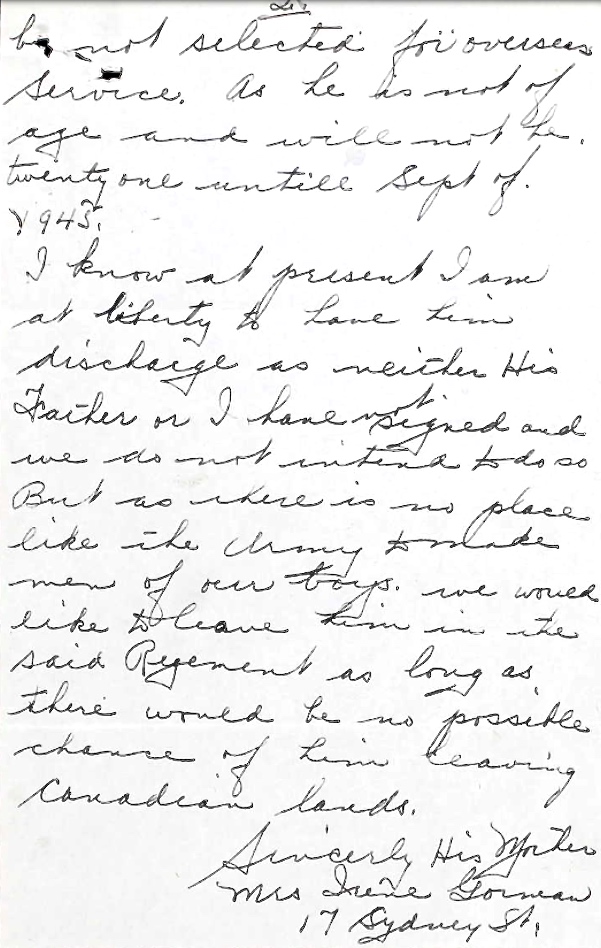 2.
be not selected for overseas
Service. As he is not of
age and will not be.
twenty one untill Sept of.
1945.
I know at present I am
at liberty to have him
discharge as neither His
Father or I have not signed and
we do not intend to do so
But as there is no place
like the Army to make
men of our boys. we would
like to leave him in the
said Regement as long as
there would be no possible
chance of him leaving
Canadian lands.
Sincerly His Mother
Mrs Irene Gorman
17 Sydney St.